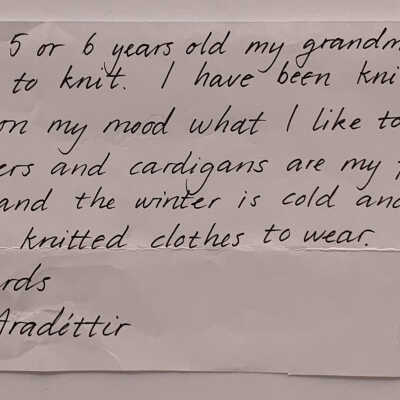 5 or 6 years old my
to knit. I have been
on my mood what I like to
and cardigans are my
and the winter is cold
knitted clothes to wear.
Aradéttir